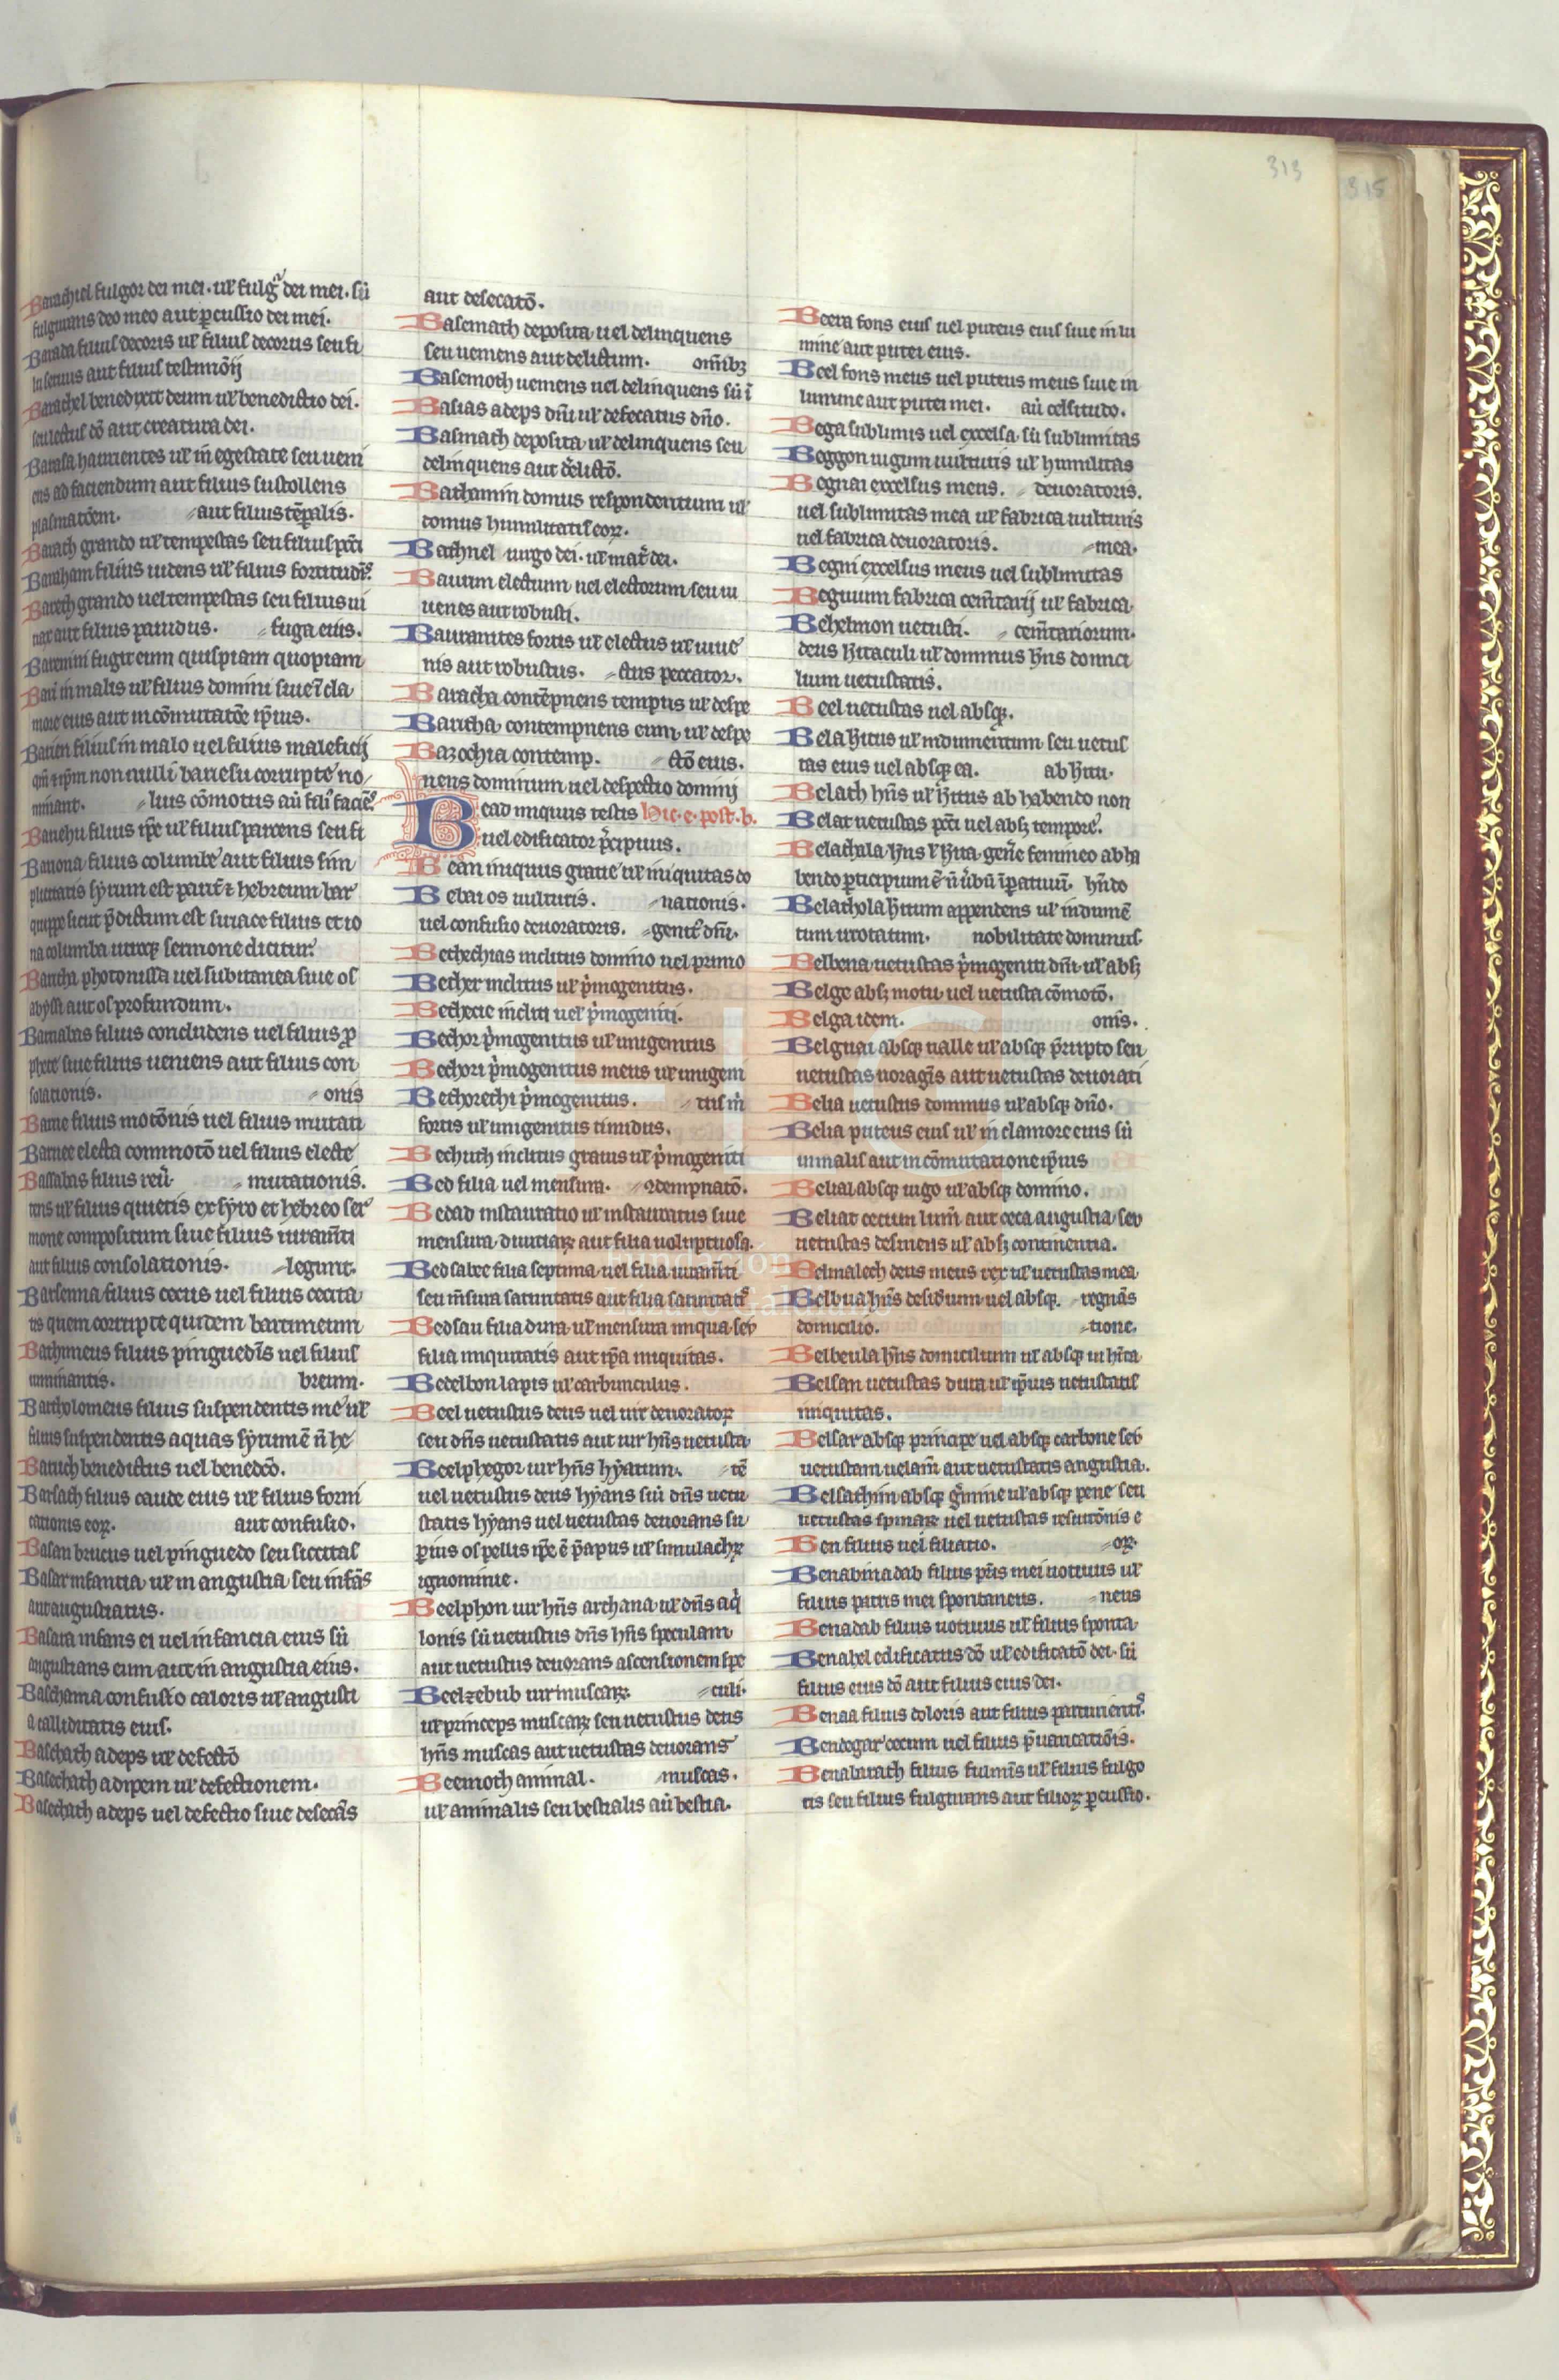 313
315
Barachiel fulgor dei mei. ul' fulg' dei mei. sū
fulgurans deo meo aut p̄cussio dei mei.
Barada filius decoris ul' filius decorus seu fi
aut filius testimōij
Barachel benedixit deum ul' benedictio dei.
seu lectus dō aut creatura dei.
Barasa haurientes ul' in egestate seu ueni
ens ad faciendum aut filius sustollens
plasmatōem. aut filius tēp̄alis.
Barach grando ul' tempestas seu filius pct̄i
Baraham filius uidens ul' filius fortitudīs.
Barech grando uel tempestas seu filius ui
nax aut filius pauidus. fuga eius.
fugit eum quispiam quopiam
Bari in malis ul' filius domini siue ī cla
more eius aut in cōmutatōe ip̄ius.
Barien filius in malo uel filius maleficij
qm̄ ip̄m non nulli barieu corrupte no/
minant. lius cōmotus aū filiꝰ faciēs
Barieu filius ip̄e ul' filius parcens seu fi
Bariona filius columbe aut filius sim
plicitatis syrum est parit̄ ⁊ hebreum bar
quippe sicut p̄dictum est siriace filius et io
na columba utroqꝫ sermone dicitur.
phitonissa uel subitanea siue os
abyssi aut os profundum.
Barnabas filius concludens uel filius p̄
phete siue filius ueniens aut filius con
solationis. onis
Barne filius motōnis uel filius mutati
Barnee electa commotō uel filius electe
Barsabas filius reūt mutationis.
tens ul' filius quietis ex syro et hebreo ser
mone compositum siue filius iuram̄ti
aut filius consolationis. legunt.
Barsenna filius cecus uel filius cecita
tis quem corrupte quidem bartimeum
Barthimeus filius pinguedīs uel filius
ruminantis. breum.
Bartholomeus filius suspendentis me ul'
filius suspendentis aquas syrum ē n̄ he
Baruch benedictus uel benedcō.
Barsach filius caude eius ul' filius forni
cationis eoꝝ. aut confusio.
Basan brucus uel pinguedo seu siccitas
Basar infantia ul' in angustia seu infās
aut angustiatus.
Basara infans ei uel infancia eius sū
angustians eum aut in angustia eius.
Baschama confusio caloris ul' angusti
a calliditatis eius.
Baschath adeps ul' defectō
Basechath adipem ul' defectionem.
Basechath adeps uel defectio siue desecās
aut desecatō.
Basemath deposita uel delinquens
seu uemens aut delictum. om̄ibꝫ
Basemoth uemens uel delinquens sū ī
Basias adeps dn̄i ul' defecatus dn̄o.
Basmath deposita ul' delinquens seu
delinquens aut delictō.
Bathamin domus respondentium ul'
domus humilitatis eoꝝ.
Bathuel uirgo dei. ul' mat̄ dei.
Baurim electum uel electorum seu iu
uenes aut robusti.
Bauramites fortis ul' electus ul' iuue
nis aut robustus. ctus peccator.
Bazacha contēpnens tempus ul' despe
Bazicha contempnens eum ul' despe
Bazochia contemp. ctō eius.
nens dominum uel despectio dominj
Bead iniquus testis Hic. e. post. b.
uel edificator p̄cipuus.
Bean iniquus gratie ul' iniquitas do
Bebai os uultutis. nationis.
uel confusio deuoratoris. genit̄ dn̄i.
Bechechias inclitus domino uel primo
Becher inclitus ul' p̄mogenitus.
Bechecie incliti uel p̄mogeniti.
Bechor p̄mogenitus ul' unigenitus
Bechori p̄mogenitus meus ul' unigeni
Bechorechi p̄mogenitus. tus m̄
fortis ul' unigenitus timidus.
Bechuth inclitus grauis ul' p̄mogeniti
Bed filia uel mensura. ↄtempnatō.
Bedad instauratio ul' instauratus siue
mensura diuitiaꝝ aut filia uoluptuosa.
Bedsabee filia septima uel filia iuram̄ti
seu m̄sura saturitatis aut filia saturitatꝰ
Bedsau filia dura ul' mensura iniqua seu
filia iniquitatis aut ip̄a iniquitas.
Bedellion lapis ul' carbunculus.
Beel uetustus deus uel uir deuorator
seu dn̄s uetustatis aut uir hn̄s uetusta
Beelphegor uir hn̄s hyatum. tē
uel uetustus deus hyans siū dn̄s uetu
statis hyans uel uetustas deuorans su
p̄ius os pellis ip̄e ē p̄apus ul' simulachꝝ
ignominie.
Beelphon uir hn̄s archana ul' dn̄s aq̄
lonis sū uetustus dn̄s hn̄s speculam
aut uetustus deuorans ascensionem spe
Beelzebub uir muscaꝝ. culi.
ul' princeps muscaꝝ seu uetustus deus
hn̄s muscas aut uetustas deuorans
Beemoth animal. muscas.
ul' animalis seu bestialis aū bestia.
Beera fons eius uel puteus eius siue in lu
mine aut putei eius.
Beel fons meus uel puteus meus siue in
lumine aut putei mei. aū celsitudo.
Bega sublimis uel excelsa sū sublimitas
Beggon iugum uultutis ul' humilitas
Begnai excelsus meus. deuoratoris.
uel sublimitas mea ul' fabrica uulturis
uel fabrica deuoratoris. mea.
Begni excelsus meus uel sublimitas
Beguum fabrica cem̄tarij ul' fabrica
Behelmon uetusti. cem̄tariorum.
deus h̄itaculi ul' dominus hn̄s domici
lium uetustatis.
Beel uetustas uel absqꝫ.
Bela h̄itus ul' indumentum seu uetus
tas eius uel absqꝫ ea. ab h̄itu.
Belath hn̄s ul' h̄itus ab habendo non
Belat uetustas pct̄i uel absꝫ tempore.
Belachala hn̄s ul' h̄ita gen̄e femineo ab ha
bendo p̄ticipium ē n̄ ūbū īp̄atiuū. hn̄do
Belachola h̄itum appendens ul' indumē
tum rotatum. nobilitate dominus.
Belbena uetustas p̄mogeniti dn̄i ul' absꝫ
Belge absꝫ motu uel uetusta cōmotō.
Belga idem. onis.
Belguai absqꝫ ualle ul' absqꝫ p̄rupto seu
uetustas uoragīs aut uetustas deuorati
Belia uetustus dominus ul' absqꝫ dn̄o.
Belia puteus eius ul' in clamore eius sū
in malis aut in cōmutatione ip̄ius
Belial absqꝫ iugo ul' absqꝫ domino.
Beliar cecum lum̄ aut ceca angustia seu
uetustas desinens ul' absꝫ continentia.
Belmalech deus meus rex ul' uetustas mea
Belbua hn̄s desidium uel absqꝫ. regnās
domicilio. tione.
Belbeula hn̄s domicilium ul' absqꝫ in h̄ita
Belsan uetustas dura ul' ip̄ius uetustatis
iniquitas.
Belsar absqꝫ principe uel absqꝫ carbone seu
uetustam uelam̄ aut uetustatis angustia.
Belsathim absqꝫ ḡmine ul' absqꝫ pene seu
uetustas spinaꝝ uel uetustas resuttōnis e
Ben filius uel filiatio. oꝝ.
Benabinadab filius pr̄is mei uotiuus ul'
filius patris mei spontaneus. neus
Benadab filius uotiuus ul' filius sponta
Benahel edificatus dō ul' edificatō dei. sū
filius eius dō aut filius eius dei.
Benaa filius doloris aut filius parturientꝰ.
Bendegar cecum uel filius p̄uaricatiōis.
Benabarach filius fulmīs ul' filius fulgo
ris seu filius fulgurans aut filioꝝ p̄cussio.